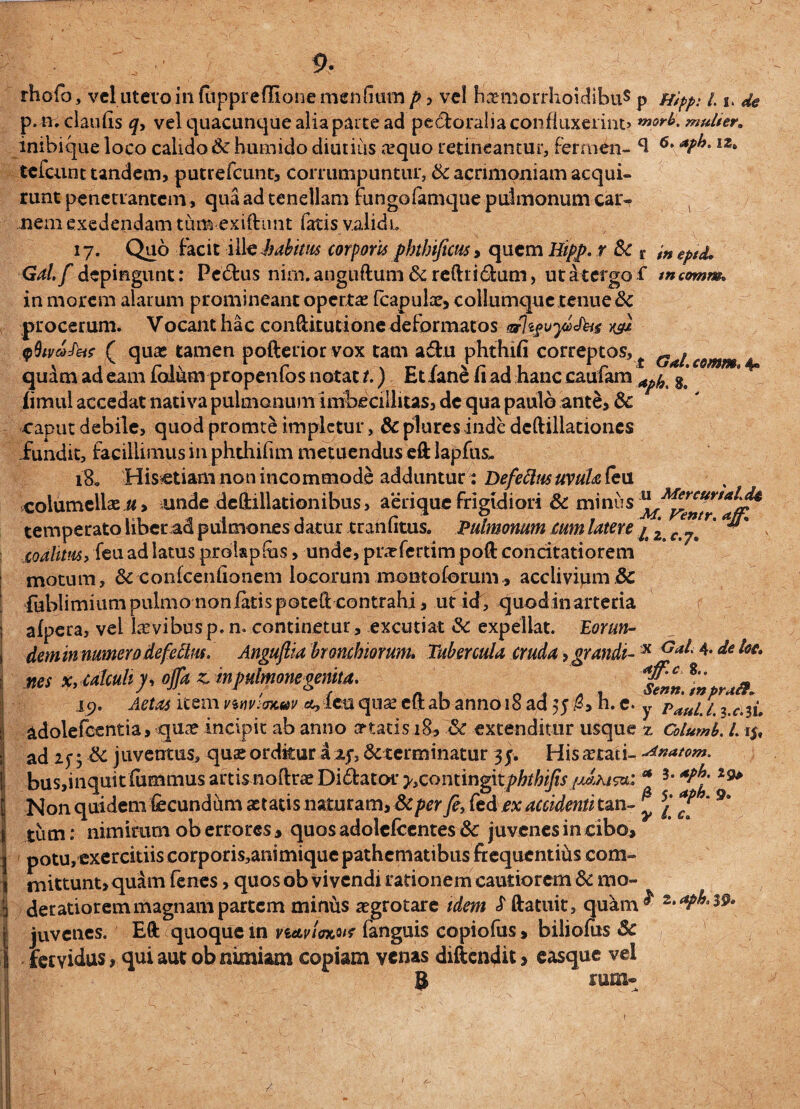 9.
rhoſo, vel utero in ſuppreſſione menſium p, vel hæmorrhoidibuˢ p Hipp: l. 1. de
p. n. clauſis q, vel quacunque alia parte ad pectoralia confluxerint, morb. mulier.
inibique loco calido & humido diutiùs æquo retineantur, fermen- q 6. aph. 12.
teſcunt tandem, putreſcunt, corrumpuntur, & acrimoniam acqui-
runt penetrantem, quâ ad tenellam fungoſamque pulmonum car-
nem exedendam tùm exiſtunt ſatis validi.
17. Quò facit ille habitus corporis phthiſicus, quem Hipp. r & r in epid.
Gal. ſ depingunt: Pectus nim. anguſtum & reſtrictum, ut à tergo ſ in comm.
in morem alarum promineant opertæ ſcapulæ, collumque tenue &
procerum. Vocant hâc conſtitutione deformatos πτερυγώδεις καὶ
φθινώδεις ( quæ tamen poſterior vox tam actu phthiſi correptos,
quàm ad eam ſolùm propenſos notat t. ) Et ſanè ſi ad hanc cauſam t Gal. comm. 4.
ſimul accedat nativa pulmonum imbecillitas, de qua paulò antè, & aph. 8.
caput debile, quod promtè impletur, & plures indè deſtillationes
fundit, facillimus in phthiſim metuendus eſt lapſus.
18. His etiam non incommodè adduntur: Defectus uvulæ ſeu
columellæ u, unde deſtillationibus, aërique frigidiori & minùs u Mercurial. de
temperato liber ad pulmones datur tranſitus. Pulmonum cum latere M. Ventr. aff.
coalitus, ſeu ad latus prolapſus, unde, præſertim poſt concitatiorem l. 2. c. 7.
motum, & conſcenſionem locorum montoſorum, acclivium &
ſublimium pulmo non ſatis poteſt contrahi, ut id, quod in arteria
aſpera, vel lævibus p. n. continetur, excutiat & expellat. Eorun-
dem in numero defectus. Anguſtia bronchiorum. Tubercula cruda, grandi- x Gal. 4. de loc.
nes x, calculi y, oſſa z. in pulmone genita. aff. c. 8.
19. Aetas item νεανίσκων α, ſeu quæ eſt ab anno 18 ad 35 β, h. e. Senn. in pract.
adoleſcentia, quæ incipit ab anno ætatis 18, & extenditur usque y Paul. l. 3. c. 31.
ad 25; & juventus, quæ orditur à 25, & terminatur 35. His ætati- z Columb. l. 15.
bus, inquit ſummus artis noſtræ Dictator γ, contingit phthiſis μάλιστα: Anatom.
Non quidem ſecundùm ætatis naturam, & per ſe, ſed ex accidenti tan- α 3. aph. 29.
tùm: nimirum ob errores, quos adoleſcentes & juvenes in cibo, β 5. aph. 9.
potu, exercitiis corporis, animique pathematibus frequentiùs com- γ l. c.
mittunt, quàm ſenes, quos ob vivendi rationem cautiorem & mo-
deratiorem magnam partem minùs ægrotare idem δ ſtatuit, quàm δ 2. aph. 39.
juvenes. Eſt quoque in νεανίσκοις ſanguis copioſus, bilioſus &
fervidus, qui aut ob nimiam copiam venas diſtendit, easque vel
B rum-